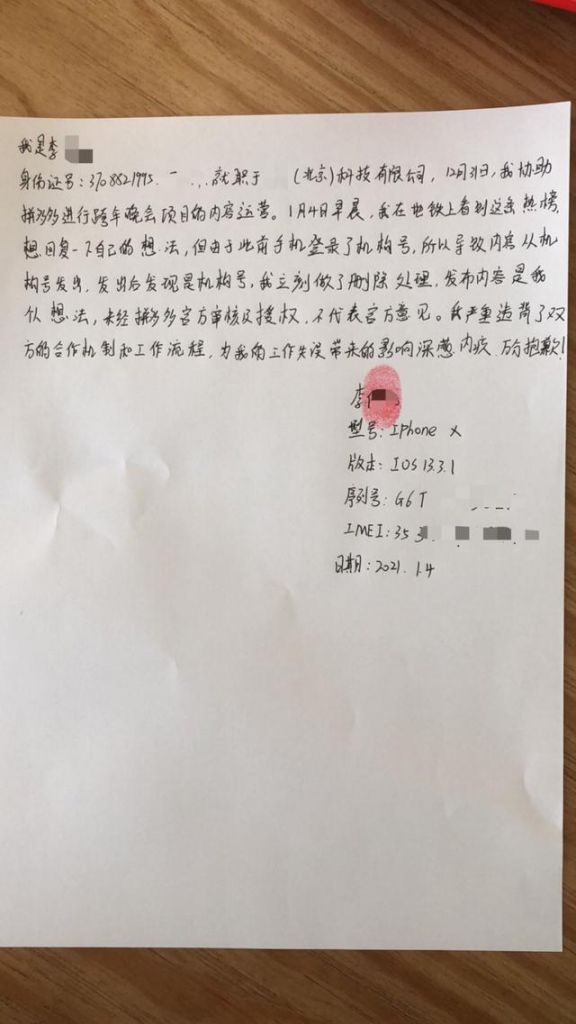 我是李
身份证号：3708821995. 就职于 (北京)科技有限公司，12月31日，我协助
拼多多进行跨年晚会项目的内容运营。1月4日早晨，我在地铁上看到这条热榜，
想回复一下自己的想法，但由于此前手机登录了机构号，所以导致内容从机
构号发出，发出后发现是机构号，我立刻做了删除处理，发布内容是我
个人想法，未经拼多多官方审核及授权，不代表官方意见。我严重违背了双
方的合作机制和工作流程，为我的工作失误带来的影响深感内疚，万分抱歉！
李
型号：IPhone X
版本：IOS 13.3.1
序列号：G6T
IMEI：35
日期：2021.1.4